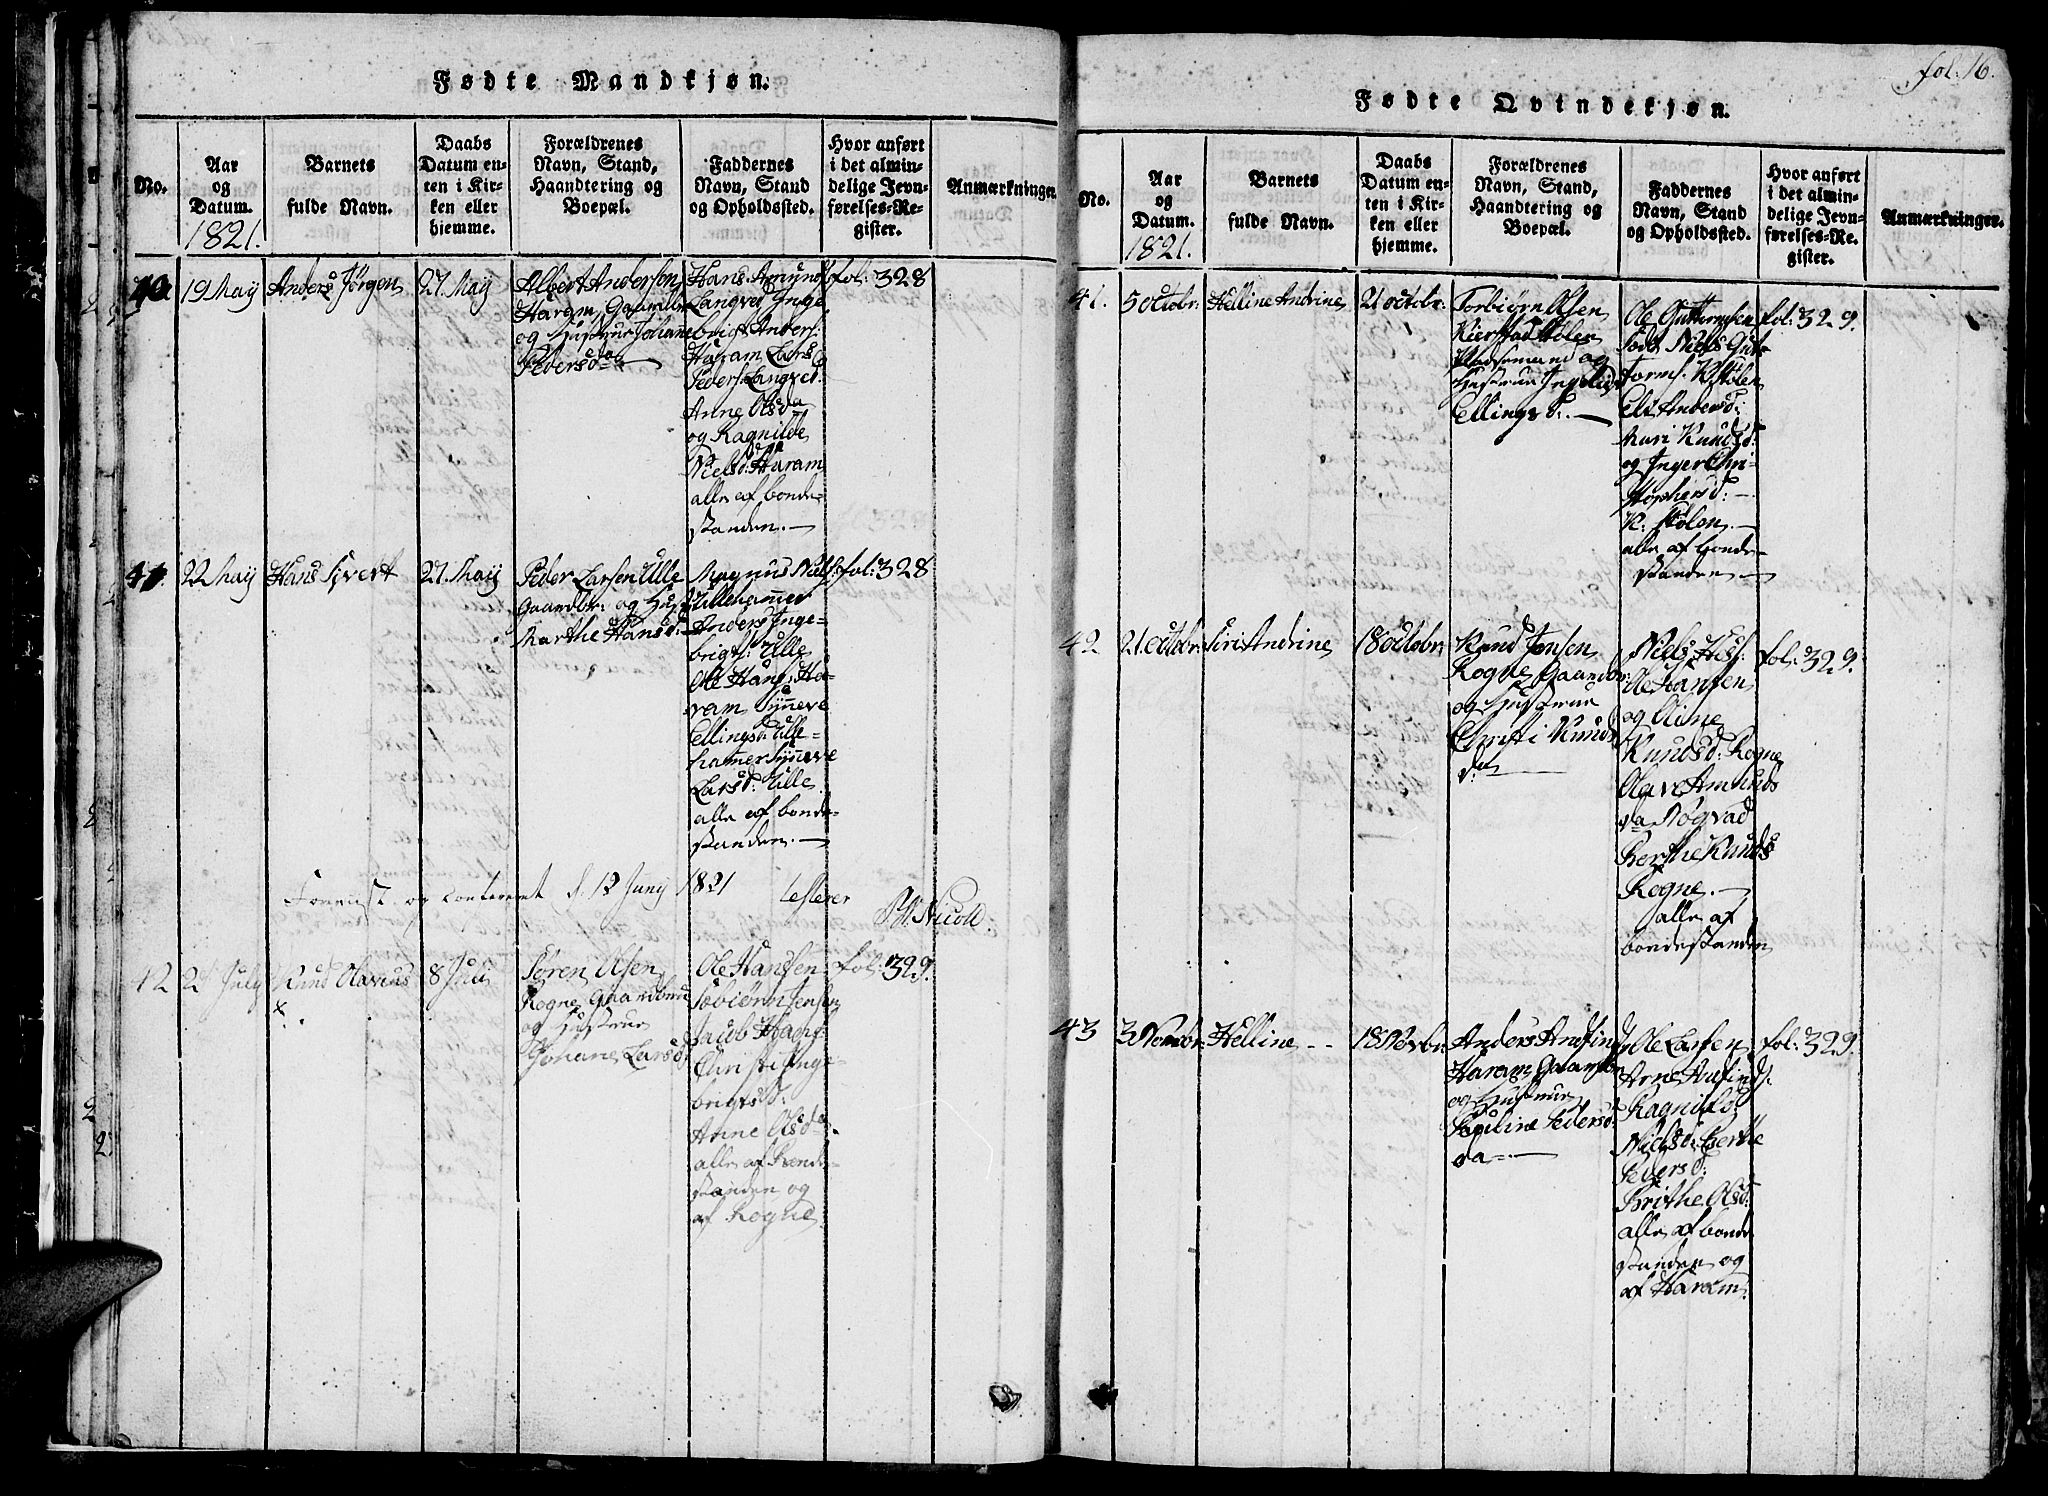 Fødte Mandkjøn.
No.
Aar
og
Datum.
1821.
Barnets
fulde Navn.
Daabs
Datum en-
ten i Kir-
ken eller
hjemme.
Forældrenes
Navn, Stand,
Haandtering og
Boepæl.
Faddernes
Navn, Stand
og Opholdssted.
Hvor anført
i det almin-
delige Jevn-
førelses-Re-
gister.
Anmærkninger.
40
19 Maij
Anders Jørgen
27. Maij
Albert Andersen
Haram Gaardbr
og Hustrue Johane
Pedersda
Hans Amunds
Langved Inge
brigt Anders:
Haram Lars
Peders: Langved.
Anne Olsda
og Ragnilde
Nielsd: Haram
alle af bonde-
standen.
fol: 328
41
22 Maij
Hans Sivert
27. Maij
Peder Larsen Ulle
Gaardbr: og Hust
Marthe Hansd:
Magnus Niels:
Ullehammer
Anders Inge-
brigts: Ulle
Ole Hans: Ha-
ram Synneve
Ellingsd: Ulle-
hamer Synneve
Larsd: Ulle
alle af bonde-
standen.
fol: 328
og d. 12 Junij 1821
12
2 July
Knud Olavius
8 Juli
Søren Olsen
Rogne Gaardbru
og Hustrue
Johane Larsd
Ole Hansen
Tobiørn Jensen
Jacob Hans:
Christi Inge-
brigtsd:
Anne Olsda.
alle af bonde-
standen og
af Rogne
fol: 329.
fol. 16.
Fødte Qvindekjøn.
No.
Aar
og
Datum.
1821.
Barnets
fulde Navn.
Daabs
Datum en-
ten i Kir-
ken eller
hjemme.
Forældrenes
Navn, Stand,
Haandtering og
Boepæl.
Faddernes
Navn, Stand
og Opholdssted.
Hvor anført
i det almin-
delige Jevn-
førelses-Re-
gister.
Anmærkninger.
41.
5 octobr:
Helline Andrine
21 octobr:
Torbiørn Olsen
Kierstad Stolen
Pladsemand og
Hustrue Ingeborg
Ellingsd:
Ole Guttormsen
Niels Gut-
torms: K Stolen
Eli Andersd:
Mari Knudsd:
og Inger Chri-
stophersd:
K: Stolen.
alle af bonde-
standen
fol: 329.
42
21. Octobr:
Siri Andrine
18 octobr:
Knud Jensen
Rogne Gaardbr:
og Hustrue
Christi Knuds
da
Niels
Ole Hansen
og Oline
Knudsd: Rogne
Olave Amunds
da Røgvad
Berthe Knuds
Rogne.
alle af
bondestanden
fol: 329.
43
3 Novbr:
Helline
18 Novbr:
Anders Andfind
Haram Gaardbr
og Hustrue
Pauline Pedersd:
da
Ole Larsen
Arne Anfinds:
Ragnild
Nielsd: Berthe
Pedersd:
Brithe Olsd:
alle af bonde
standen og
af Haram.
fol: 329.